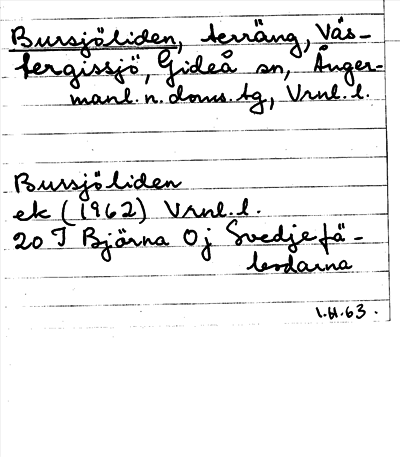 Bursjöliden, terräng, Väs-
tergissjö, Gideå sn, Ånger-
manl. n. doms. tg, Vrnl. l.
Bursjöliden
ek (1962) Vrnl. l.
20 I Björna 0 j Svedjefä-
bodarna